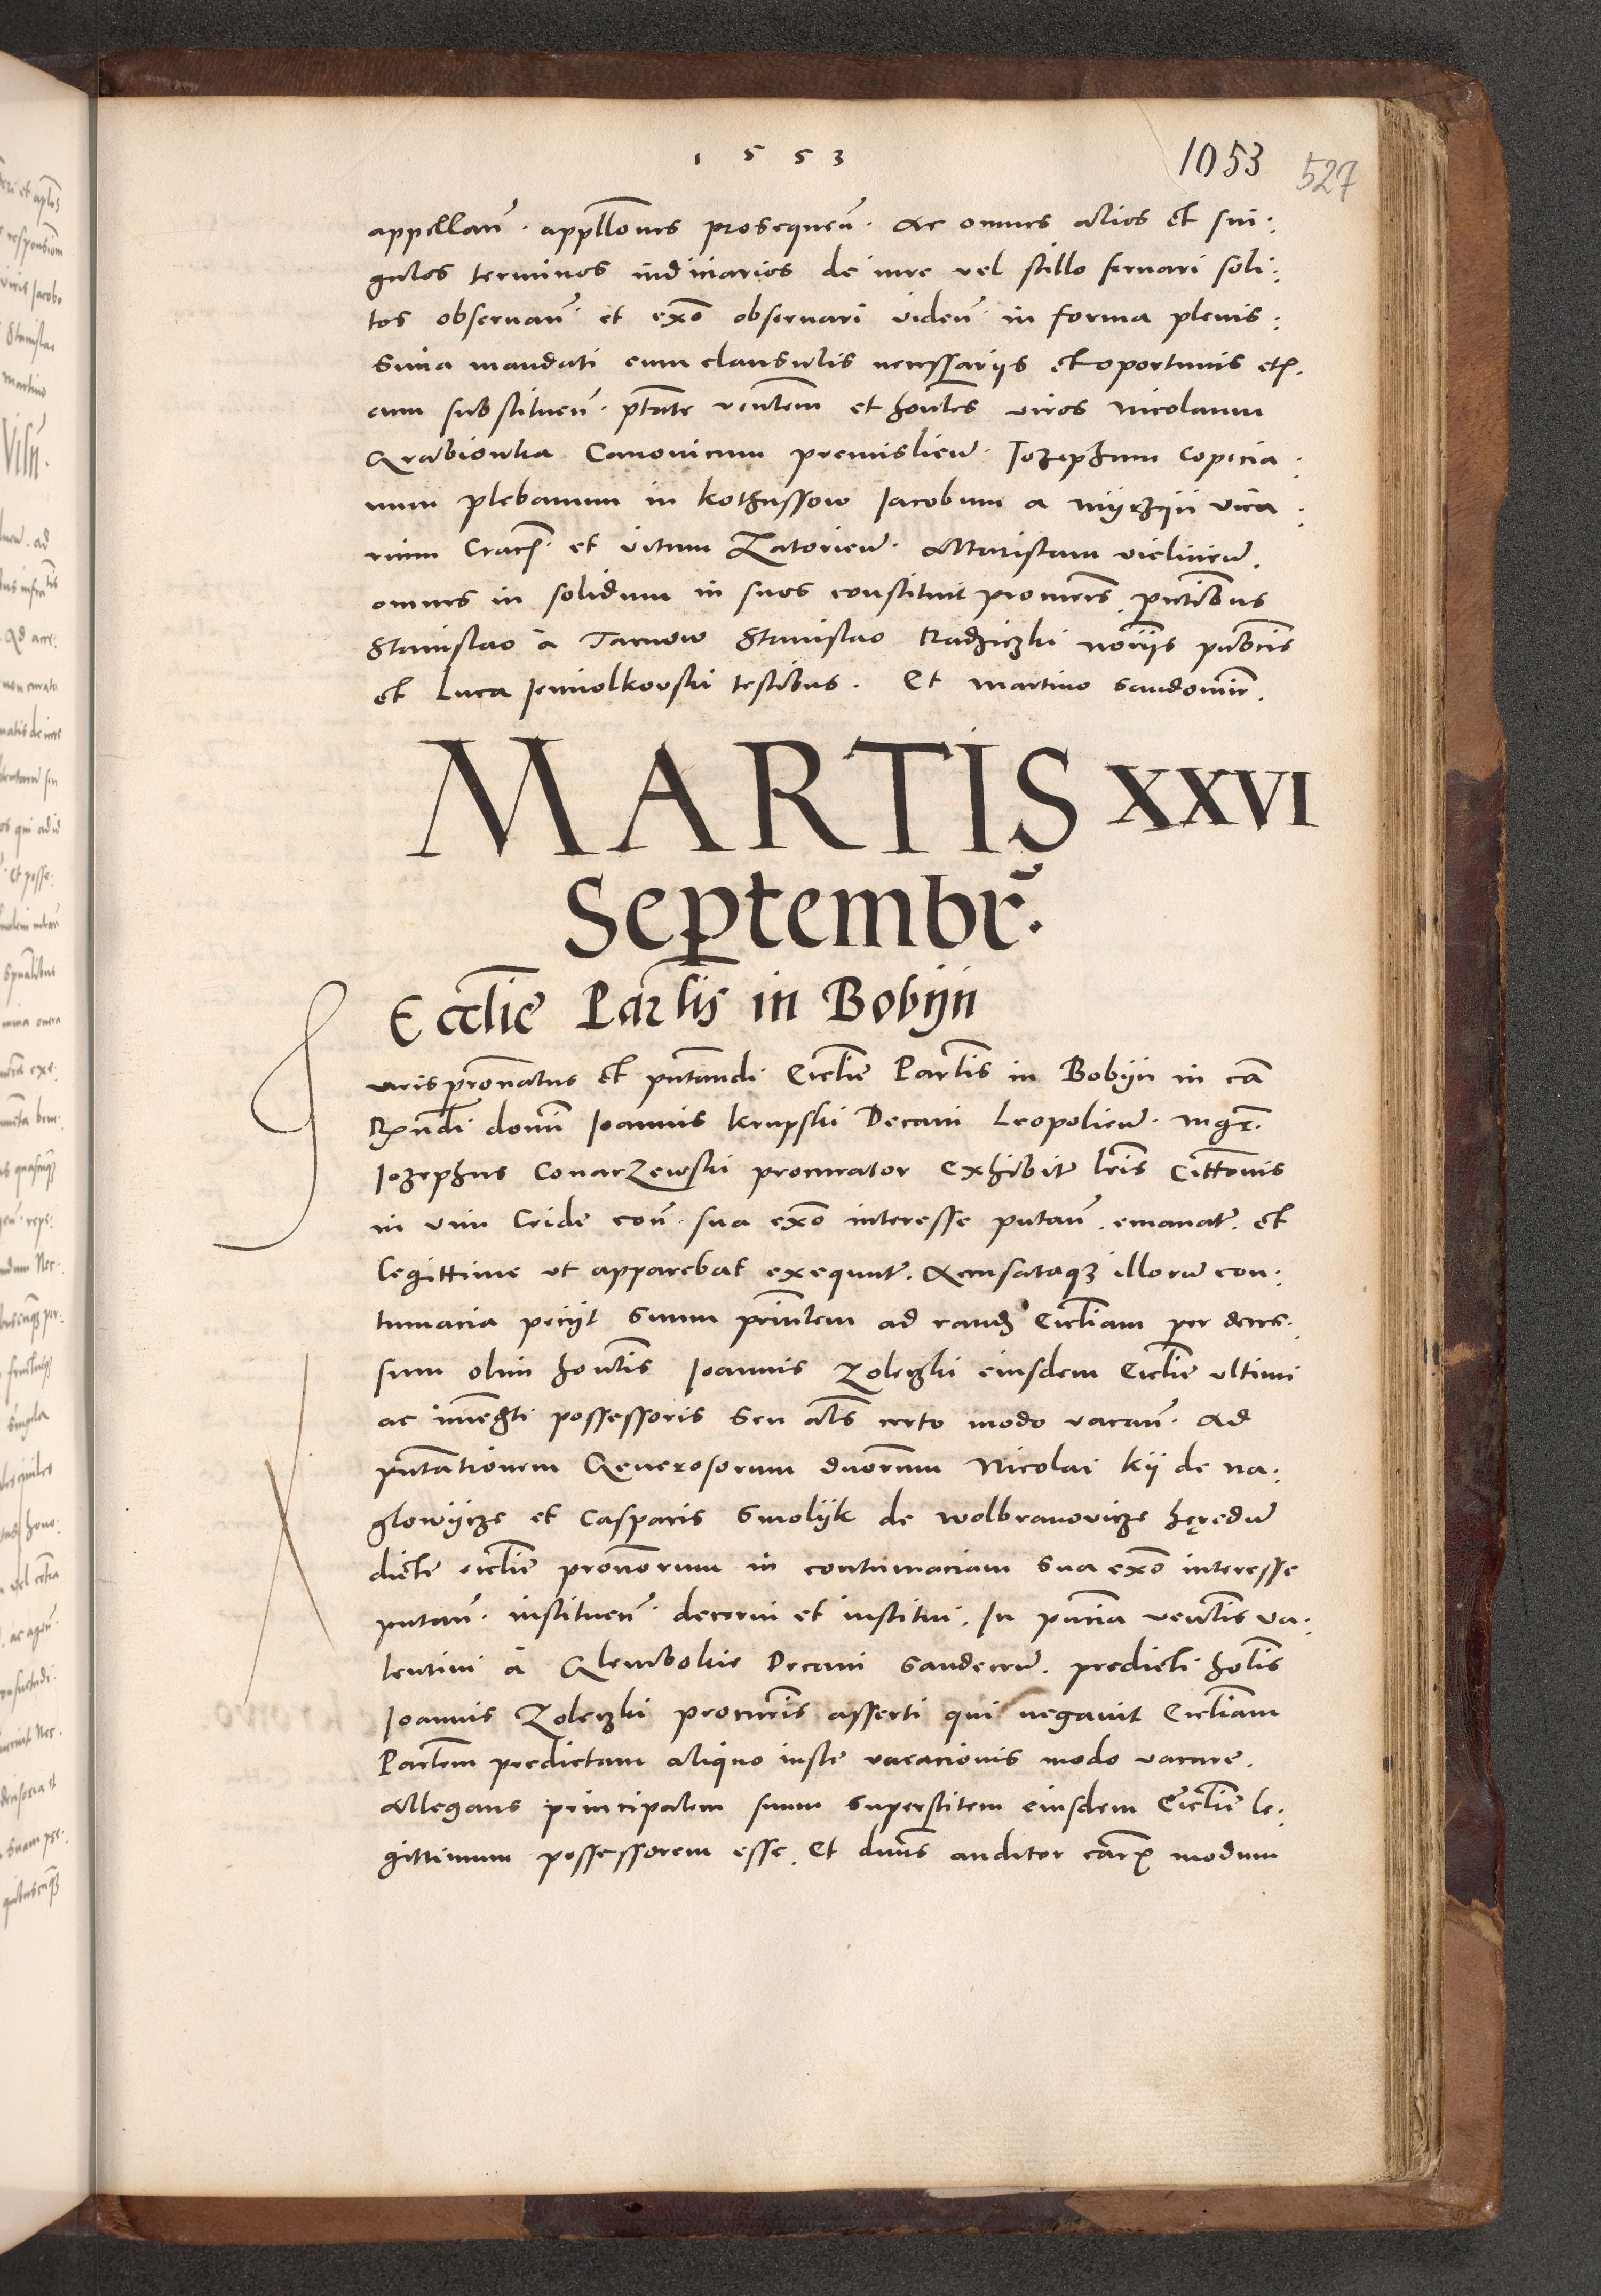 1553
1053 527
appellan̄. app̄llones prosequen̄. Ac omnes alios et sin:
gulos terminos iudiciarios de iure vel stillo seruari soli:
tos obseruan̄. et ex°o obseruari viden̄. in forma plenis:
sima mandati cum clausulis necessarijs et oportunis etc.
cum substituen̄. ptāte ven̄lem et hon̄les viros Nicolaum
Grabionka Canonicum premislien̄. Iozephum Copecia:
num plebanum in kothussow Iacobum a myrzijn vica:
rium Crac̄. et vitum Zatorien̄. Altaristam vielicien̄.
omnes in solidum in suos constituit procūres. pn̄tibus
Stanislao a Tarnow Stanislao Radziczki noriis publicis
et Luca Iemiolkovski testibus. Et martino sandomir̄.
MARTIS XXVI
Septembr̄.
Eccl̄ie Parl̄is in Bobijn
Juris pronatus et pn̄tandi Eccl̄ie Parl̄is in Bobijn in cā
Rn̄di domini Ioannis krupski Decani Leopolien̄. mgr̄.
Iozephus Conarzewski procurator Exhibit. lr̄is Citt̄onis
in vim Cride con̄. sua ex°o interesse putan̄. emanat. et
legittime vt apparebat exequut. Accusataqz illorum con:
tumacia peciit suum prin̄lem ad eandz Eccl̄iam per deces:
sum olim hon̄lis Ioannis Zoleczki eiusdem Eccl̄ie vltimi
ac imedti possessoris seu al̄s certo modo vacan̄. Ad
pn̄tationem Generosorum dnorum Nicolai kij de na:
glowijcze et Casparis Smolijk de wolbranovicze hęredum
dicte eccl̄ie pron̄orum in contumaciam sua ex°o interesse
putan̄. instituen̄. decerni et institui. In pn̄tia ven̄lis va:
lentini a Glembokie Decani sandecen̄. predicti hon̄lis
Ioannis Zoleczki procūris asserti qui negauit Eccl̄iam
Parl̄em predictam aliquo iuste vacacionis modo vacare.
Allegans principalem suum superstitem eiusdem Eccl̄ie le:
gittimum possessorem esse. Et dn̄us auditor car̄ modum